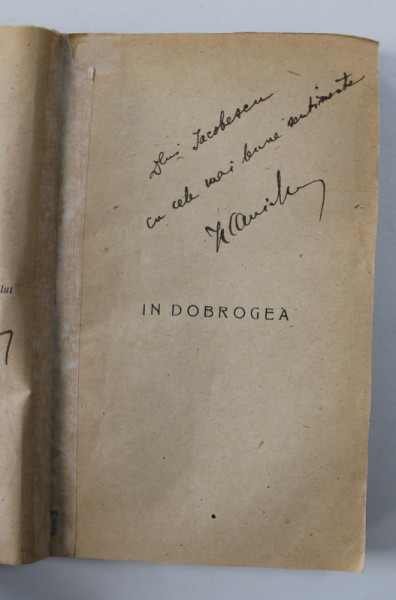 lui
Dlui Iacobescu
cu cele mai bune sentimente
IN DOBROGEA